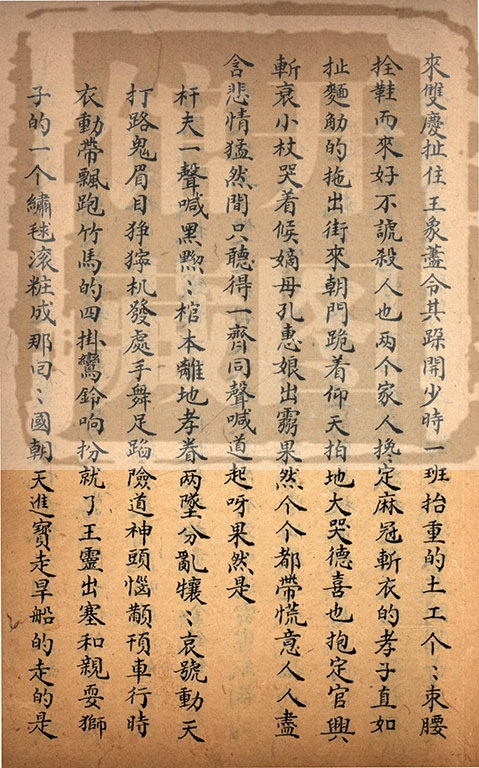 來雙慶扯住王象藎令其躲開少時一班抬重的土工个〻束腰
拴鞋而來好不諕殺人也两个家人攙定麻冠斬衣的孝子直如
扯麵觔的拖出街來朝門跪着仰天拍地大哭德喜也抱定官興
斬衰小杖哭着候嫡母孔惠娘出霧果然个个都帶慌意人人盡
含悲情猛然間只聽得一齊同聲喊道起呀果然是
杆夫一聲喊黑黦〻棺本離地孝眷两墜分亂嚷〻哀號動天
打路鬼眉目狰狞机發處手舞足蹈險道神頭惱顢頇車行時
衣動帶飄跑竹馬的四掛鸞鈴响扮就了王靈出塞和親耍獅
子的一个繡毬滚粧成那囬〻國朝天進寶走旱船的走的是